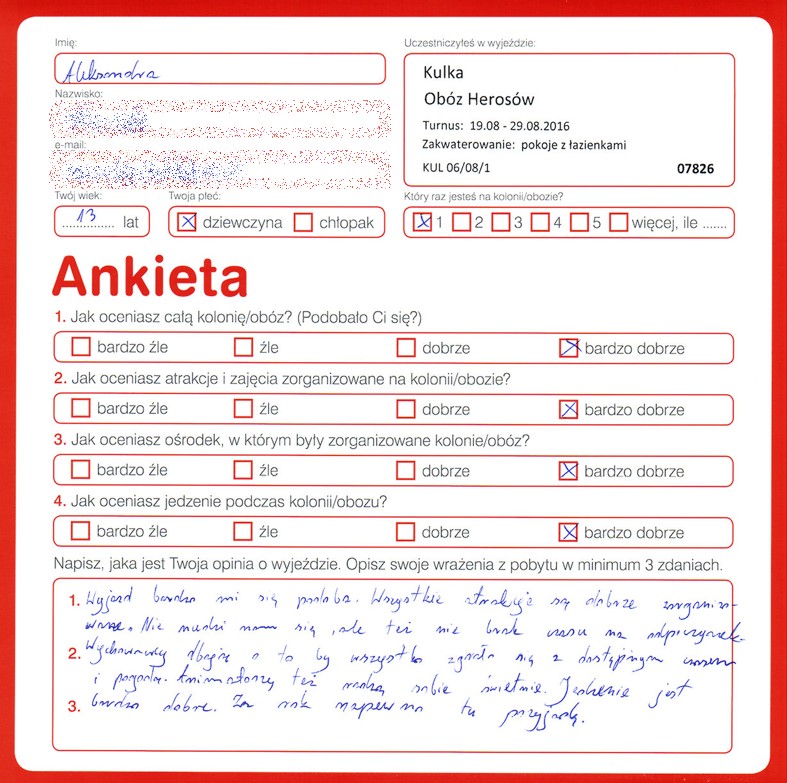 Imię:
Aleksandra
Nazwisko:
e-mail:
Twój wiek:
13 lat
Twoja płeć:
dziewczyna chłopak
Uczestniczyłeś w wyjeździe:
Kulka
Obóz Herosów
Turnus: 19.08 - 29.08.2016
Zakwaterowanie: pokoje z łazienkami
KUL 06/08/1 07826
Który raz jesteś na kolonii/obozie?
1 2 3 4 5 więcej, ile .......
Ankieta
1. Jak oceniasz całą kolonię/obóz? (Podobało Ci się?)
bardzo źle źle dobrze bardzo dobrze
2. Jak oceniasz atrakcje i zajęcia zorganizowane na kolonii/obozie?
bardzo źle źle dobrze bardzo dobrze
3. Jak oceniasz ośrodek, w którym były zorganizowane kolonie/obóz?
bardzo źle źle dobrze bardzo dobrze
4. Jak oceniasz jedzenie podczas kolonii/obozu?
bardzo źle źle dobrze bardzo dobrze
Napisz, jaka jest Twoja opinia o wyjeździe. Opisz swoje wrażenia z pobytu w minimum 3 zdaniach.
1. Wyjazd bardzo mi się podoba. Wszystkie atrakcje są dobrze zorganizo-
wane. Nie nudzi nam się, ale też nie brak czasu na odpoczynek.
2. Wychowawcy dbają o to by wszystko zgrało się z dostępnym czasem
i pogodą. Animatorzy też radzą sobie świetnie. Jedzenie jest
3. bardzo dobre. Za rok napewno tu przyjadę.